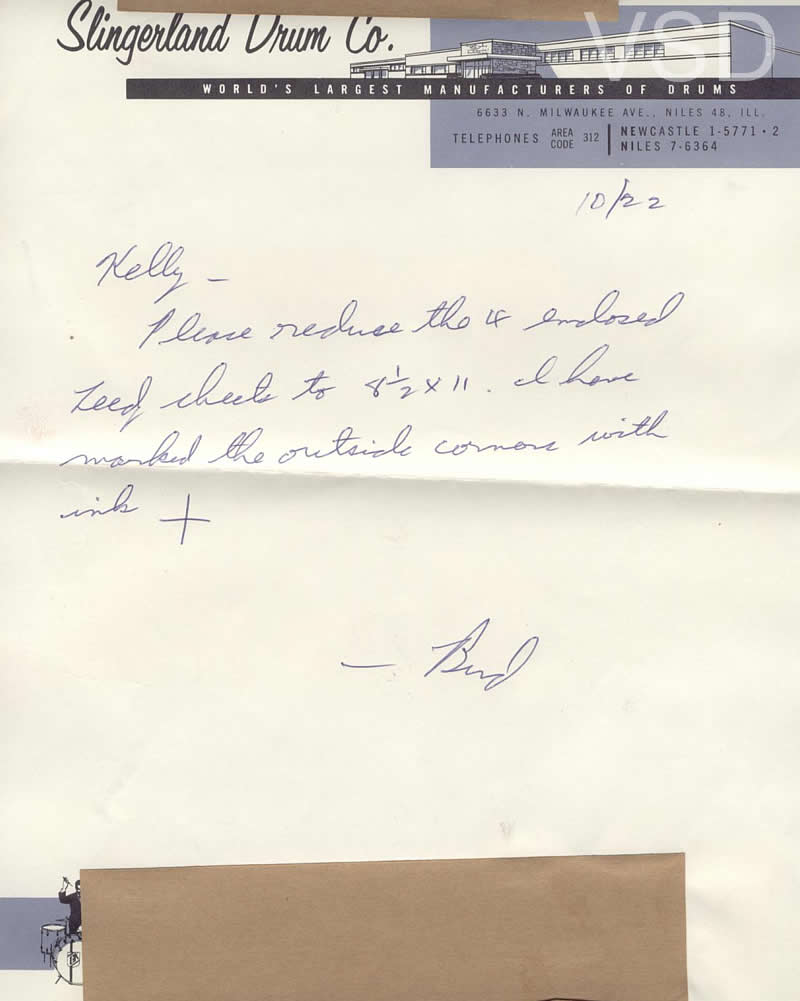 Slingerland Drum Co.
VSD
WORLD'S LARGEST MANUFACTURERS OF DRUMS
6633 N. MILWAUKEE AVE., NILES 48, ILL.
TELEPHONES AREA CODE 312 NEWCASTLE 1-5771·2
NILES 7-6364
10/22
Kelly –
Please reduce the enclosed
Leedy sheets to 8½ x 11. I have
marked the outside corners with
ink +
— Bud